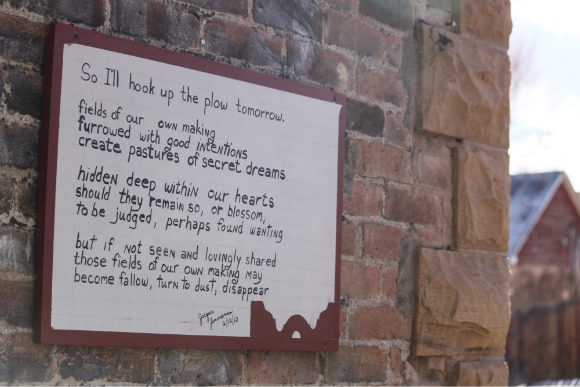 So I'll hook up the plow tomorrow.
fields of our own making
furrowed with good intentions
create pastures of secret dreams
hidden deep within our hearts
should they remain so, or blossom,
to be judged, perhaps found wanting
but if not seen and lovingly shared
those fields of our own making may
become fallow, turn to dust, disappear